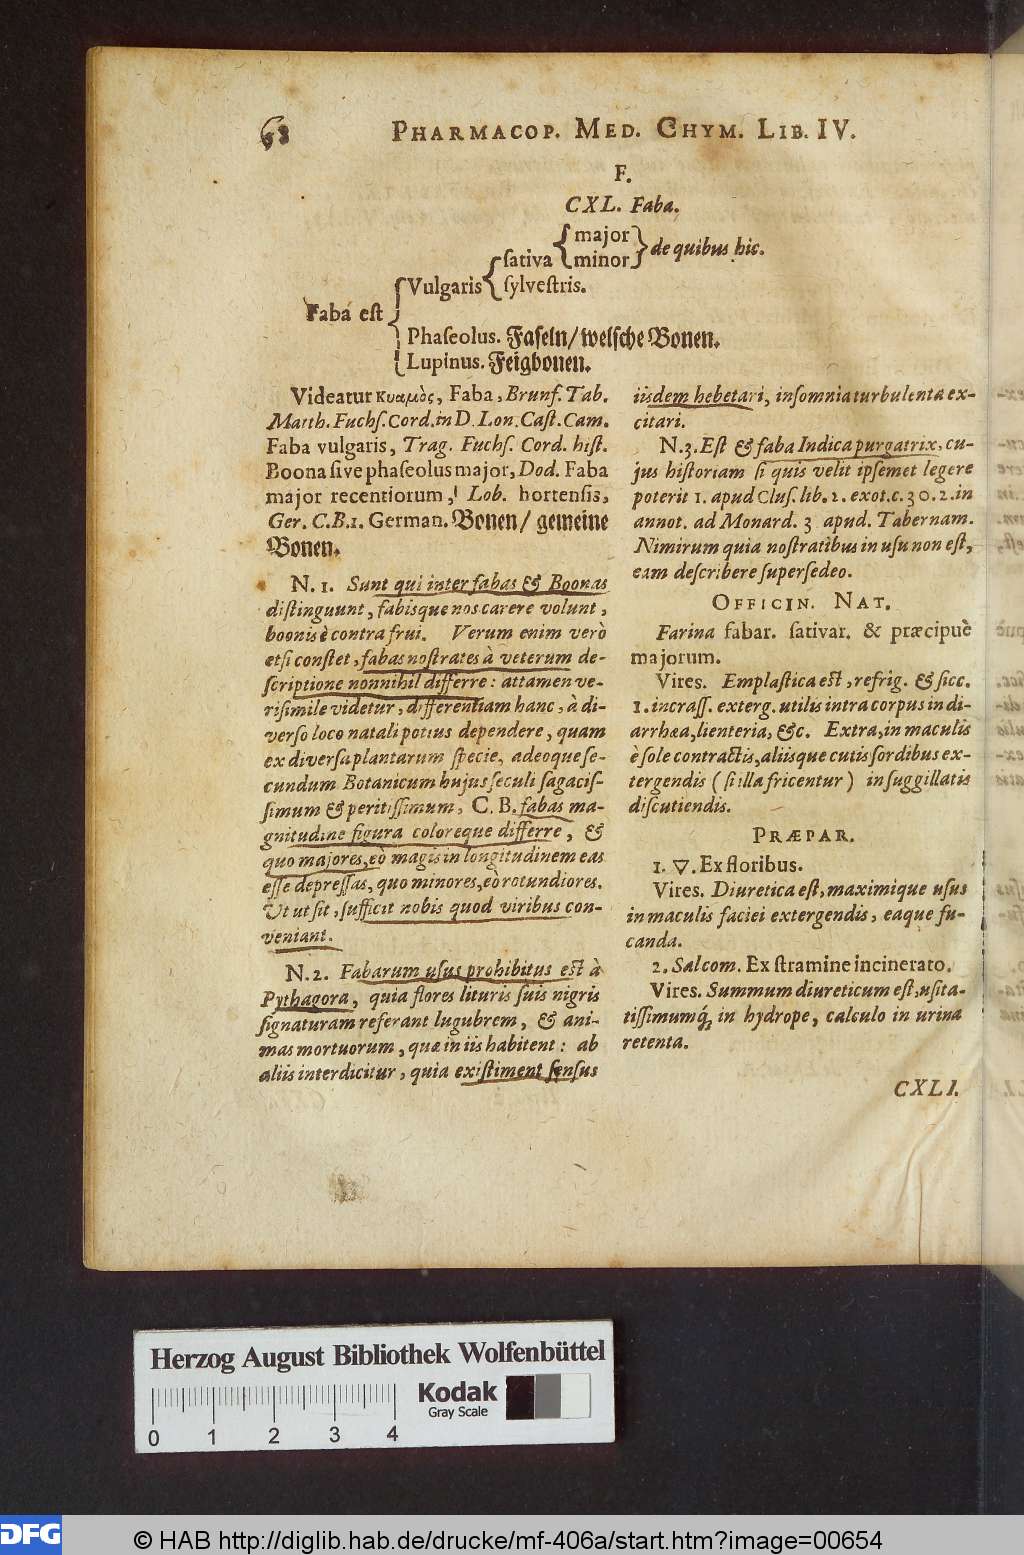 68 PHARMACOP. MED. CHYM. LIB. IV.
F.
CXL. Faba.
major
ſativa minor de quibus hic.
Vulgaris ſylveſtris.
Faba eſt
Phaſeolus. Faſeln/ welſche Bonen.
Lupinus. Feigbonen.
Videatur Κυαμὸς, Faba, Brunf. Tab.
Matth. Fuchſ. Cord. in D. Lon. Caſt. Cam.
Faba vulgaris, Trag. Fuchſ. Cord. hiſt.
Boona ſive phaſeolus major, Dod. Faba
major recentiorum, Lob. hortenſis,
Ger. C.B.1. German. Bonen/ gemeine
Bonen.
N. 1. Sunt qui inter fabas & Boonas
diſtinguunt, fabisque nos carere volunt,
boonis è contra frui. Verum enim verò
etſi conſtet, fabas noſtrates à veterum de-
ſcriptione nonnihil differre: attamen ve-
riſimile videtur, differentiam hanc, à di-
verſo loco natali potius dependere, quam
ex diverſa plantarum ſpecie, adeoque ſe-
cundum Botanicum hujus ſeculi ſagaciſ-
ſimum & peritiſſimum, C. B. fabas ma-
gnitudine figura coloreque differre, &
quo majores, eò magis in longitudinem eas
eſſe depreſſas, quo minores, eò rotundiores.
Ut ut ſit, ſufficit nobis quod viribus con-
veniant.
N. 2. Fabarum uſus prohibitus eſt à
Pythagora, quia flores lituris ſuis nigris
ſignaturam referant lugubrem, & ani-
mas mortuorum, quæ in iis habitent: ab
aliis interdicitur, quia exiſtiment ſenſus
iisdem hebetari, inſomnia turbulenta ex-
citari.
N. 3. Eſt & faba Indica purgatrix, cu-
jus hiſtoriam ſi quis velit ipſemet legere
poterit 1. apud Cluſ. lib. 2. exot. c. 30. 2. in
annot. ad Monard. 3 apud. Tabernam.
Nimirum quia noſtratibus in uſu non eſt,
eam deſcribere ſuperſedeo.
OFFICIN. NAT.
Farina fabar. ſativar. & præcipuè
majorum.
Vires. Emplaſtica eſt, refrig. & ſicc.
1. incraſſ. exterg. utilis intra corpus in di-
arrhœa, lienteria, &c. Extra, in maculis
è ſole contractis, aliisque cutis ſordibus ex-
tergendis (ſi illa fricentur) in ſuggillatis
diſcutiendis.
PRÆPAR.
1. ▽. Ex floribus.
Vires. Diuretica eſt, maximique uſus
in maculis faciei extergendis, eaque fu-
canda.
2. Sal com. Ex ſtramine incinerato.
Vires. Summum diureticum eſt, uſita-
tiſſimumq́; in hydrope, calculo in urina
retenta.
CXLI.
Herzog August Bibliothek Wolfenbüttel
Kodak
Gray Scale
0 1 2 3 4
DFG
© HAB http://diglib.hab.de/drucke/mf-406a/start.htm?image=00654